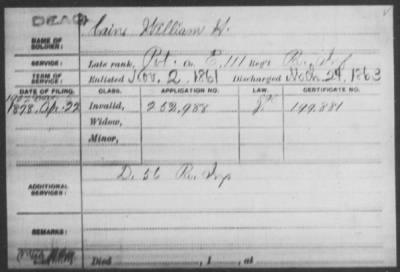 DEAD
NAME OF SOLDIER: Cains William H.
SERVICE: Late rank, Pvt. Co. E, 111 Reg't Pa. Inf
TERM OF SERVICE: Enlisted Nov. 2, 1861 Discharged Mch. 29, 1863
DATE OF FILING. CLASS. APPLICATION NO. LAW. CERTIFICATE NO.
1878, Apr. 22 Invalid, 252,988 199,881
Widow,
Minor,
ADDITIONAL SERVICES: D. 56 Pa. Inf
REMARKS:
Died , 1 , at